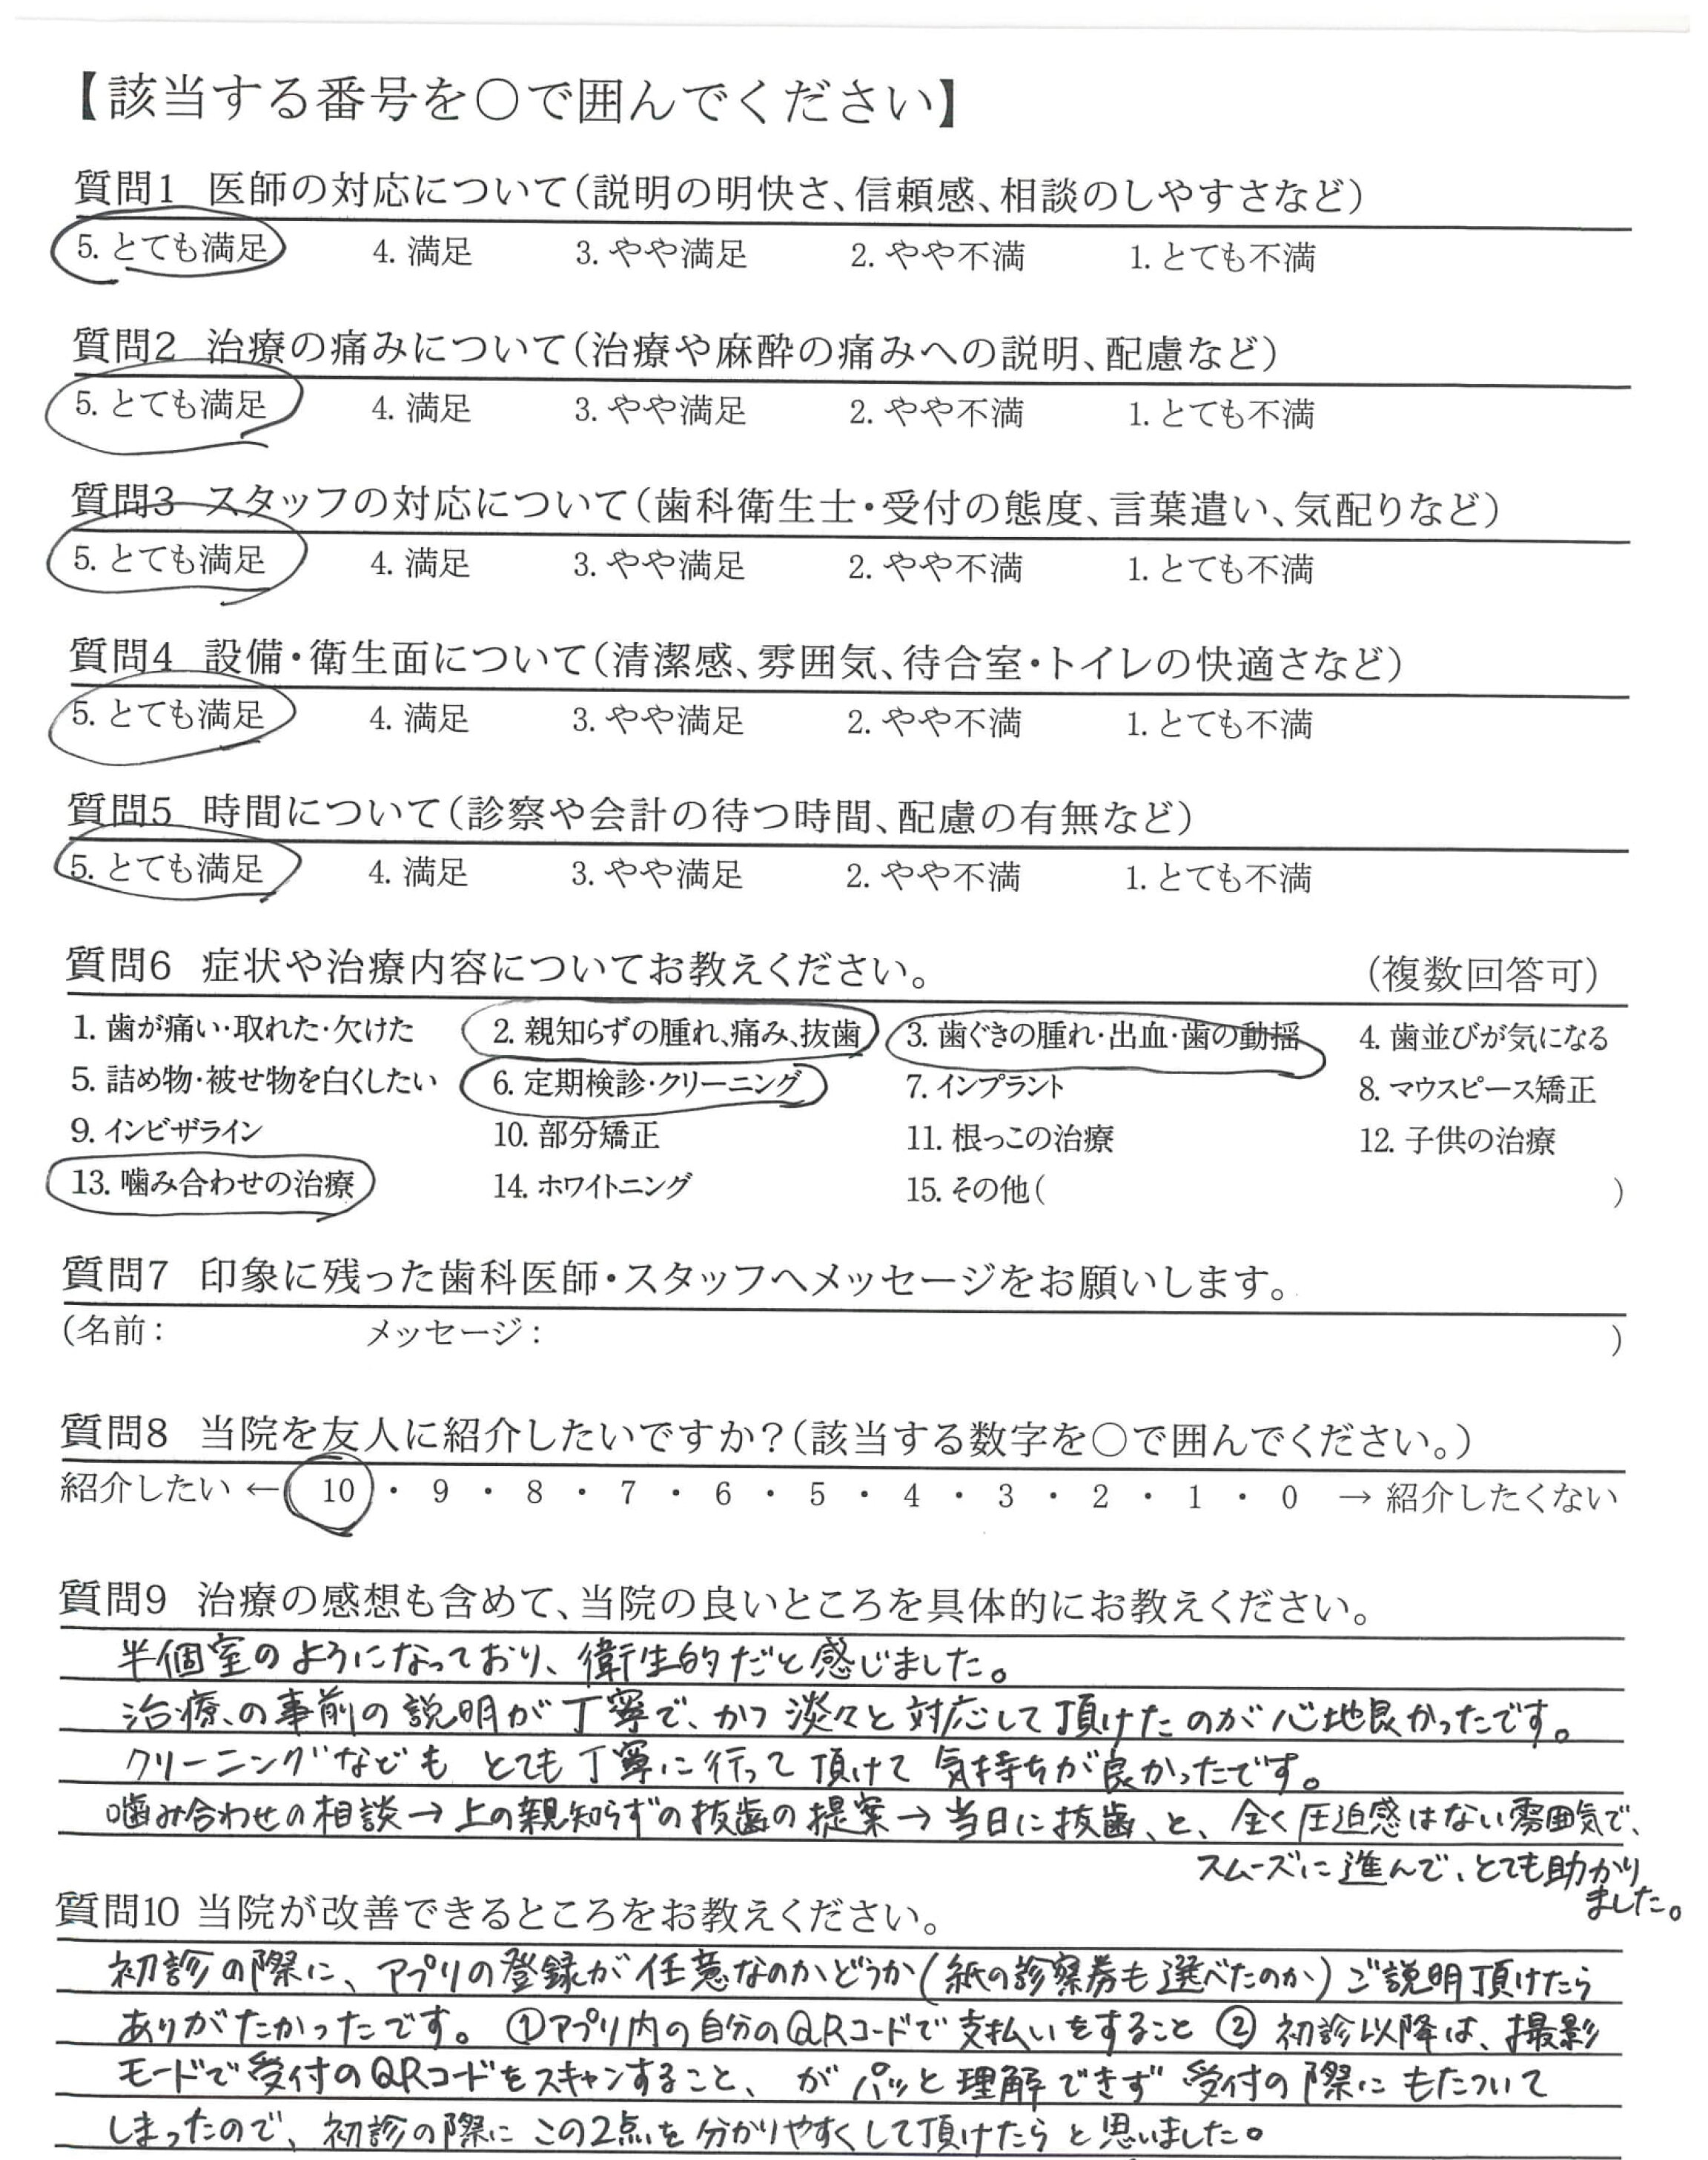 【該当する番号を○で囲んでください】
質問1 医師の対応について（説明の明快さ、信頼感、相談のしやすさなど）
5. とても満足 4. 満足 3. やや満足 2. やや不満 1. とても不満
質問2 治療の痛みについて（治療や麻酔の痛みへの説明、配慮など）
5. とても満足 4. 満足 3. やや満足 2. やや不満 1. とても不満
質問3 スタッフの対応について（歯科衛生士・受付の態度、言葉遣い、気配りなど）
5. とても満足 4. 満足 3. やや満足 2. やや不満 1. とても不満
質問4 設備・衛生面について（清潔感、雰囲気、待合室・トイレの快適さなど）
5. とても満足 4. 満足 3. やや満足 2. やや不満 1. とても不満
質問5 時間について（診察や会計の待つ時間、配慮の有無など）
5. とても満足 4. 満足 3. やや満足 2. やや不満 1. とても不満
質問6 症状や治療内容についてお教えください。 （複数回答可）
1. 歯が痛い・取れた・欠けた 2. 親知らずの腫れ、痛み、抜歯 3. 歯ぐきの腫れ・出血・歯の動揺 4. 歯並びが気になる
5. 詰め物・被せ物を白くしたい 6. 定期検診・クリーニング 7. インプラント 8. マウスピース矯正
9. インビザライン 10. 部分矯正 11. 根っこの治療 12. 子供の治療
13. 噛み合わせの治療 14. ホワイトニング 15. その他（ ）
質問7 印象に残った歯科医師・スタッフへメッセージをお願いします。
（名前： メッセージ： ）
質問8 当院を友人に紹介したいですか？（該当する数字を○で囲んでください。）
紹介したい ← 10 ・ 9 ・ 8 ・ 7 ・ 6 ・ 5 ・ 4 ・ 3 ・ 2 ・ 1 ・ 0 → 紹介したくない
質問9 治療の感想も含めて、当院の良いところを具体的にお教えください。
半個室のようになっており、衛生的だと感じました。
治療の事前の説明が丁寧で、かつ淡々と対応して頂けたのが心地良かったです。
クリーニングなども とても丁寧に行って頂けて気持ちが良かったです。
噛み合わせの相談→上の親知らずの抜歯の提案→当日に抜歯、と、全く圧迫感はない雰囲気で、
スムーズに進んで、とても助かり
ました。
質問10 当院が改善できるところをお教えください。
初診の際に、アプリの登録が任意なのかどうか（紙の診察券も選べたのか）ご説明頂けたら
ありがたかったです。①アプリ内の自分のQRコードで支払いをすること ② 初診以降は、撮影
モードで受付のQRコードをスキャンすること、がパッと理解できず受付の際にもたついて
しまったので、初診の際にこの2点を分かりやすくして頂けたらと思いました。